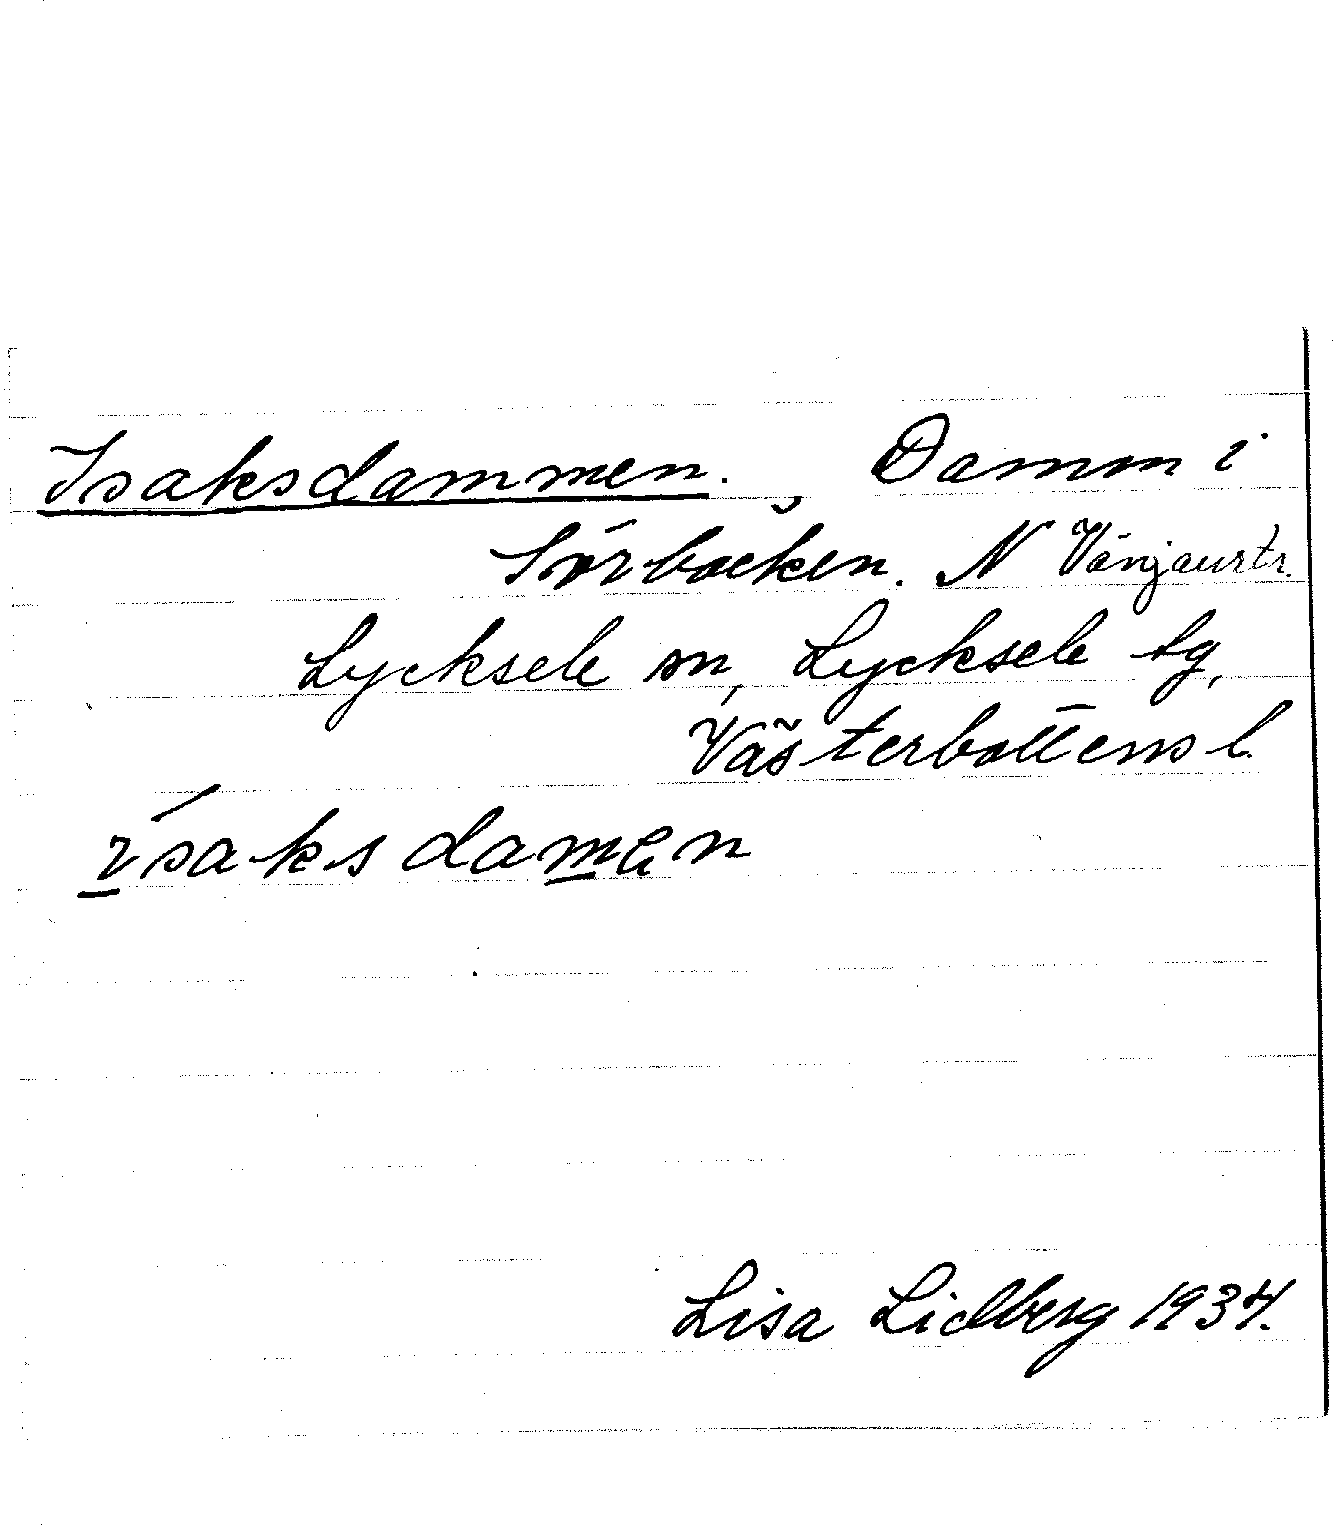 Isaksdammen. Damm i
Sörbäcken. N Vänjaurtr.
Lycksele sn, Lycksele tg,
Västerbottens l.
ísaksdamen
Lisa Lidberg 1934.